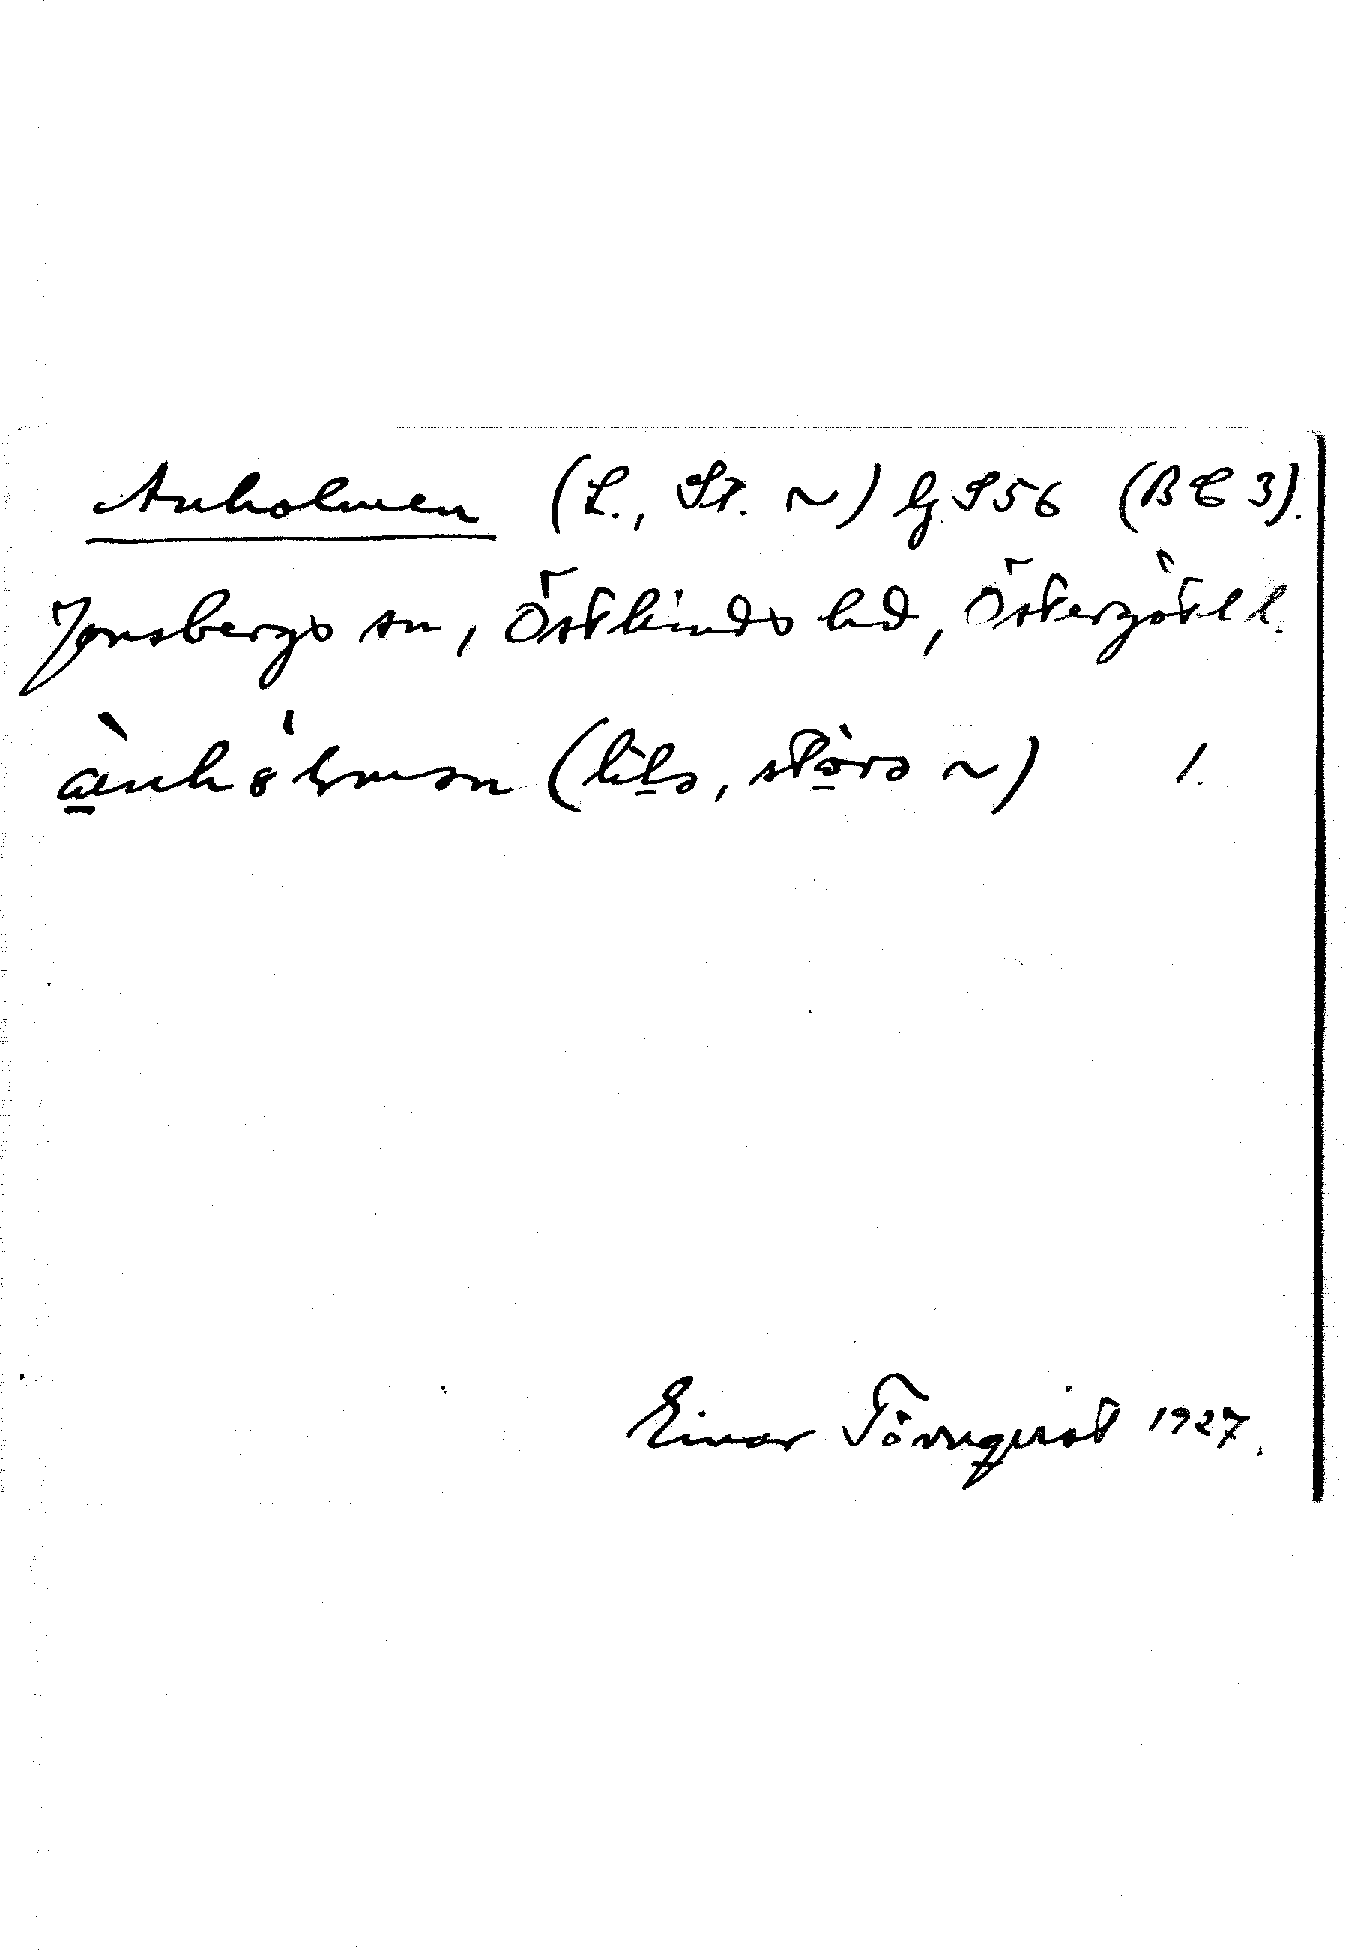 Anholmen (L., St. ~) lg. S56 (BC 3).
Jonsbergs sn, Östkinds hd, Östergötl l.
ànhólmən (lìlə, stòrə ~) 1.
Einar Törnqvist 1927.